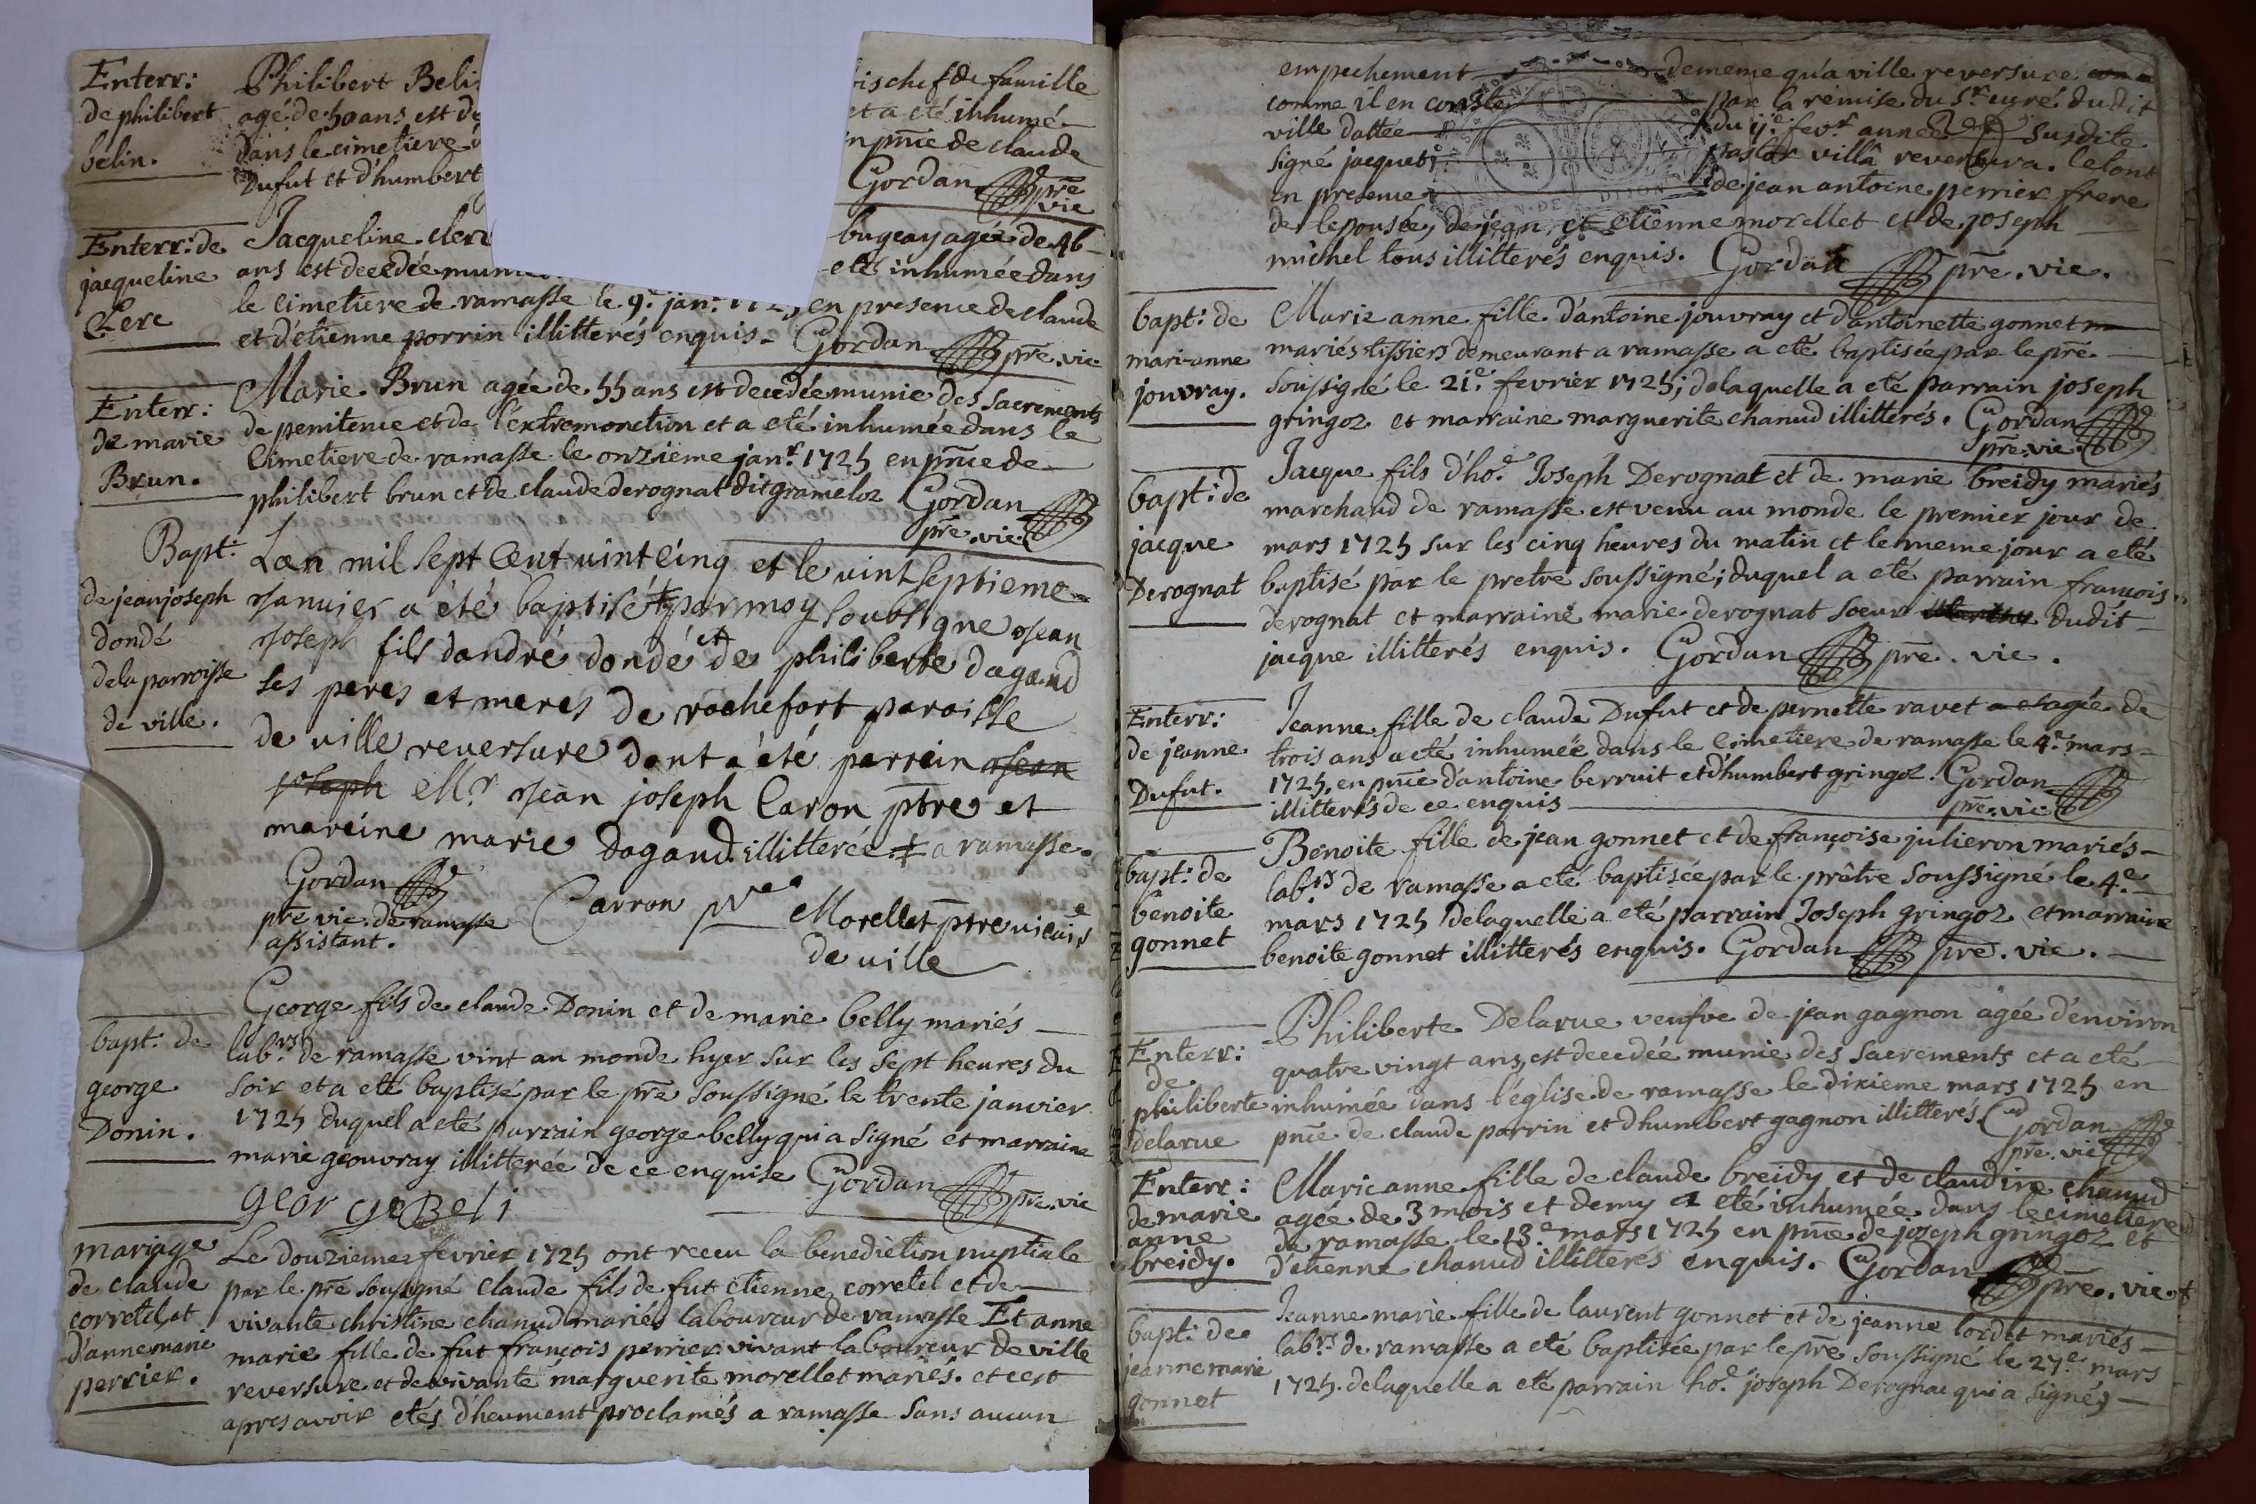 Enterr:
de philibert
belin.
Philibert Beli
agé de 50 ans est de
dans le cimetiere d
Dufut et d'humbert
is chef de famille
et a eté inhumé
n pñce de claude
Gordan pre
vic
Enterr: de
jacqueline
Clerc
Jacqueline clerc bugeay agée de 46
ans est decedée munie eté inhumée dans
le cimetiere de ramasse le 9e janr. en presence de claude
et d'etienne porrin illitterés enquis. Gordan pre. vic
Enterr:
de marie
Brun.
Marie Brun agée de 55 ans est decedée munie des sacrements
de penitence et de l'extremonction et a eté inhumée dans le
cimetiere de ramasse le onzieme janr. 1725 en pñce de
philibert brun et de claude derognat dit grameloz Gordan
pre. vic.
Bapt:
de jean joseph
dondé
de la parroisse
de ville.
Lan mil sept cent vint cinq et le vint septieme
janvier a été baptisé ‡ par moy soubsigne jean
joseph fils dandré dondé et de philiberte dagand
ses peres et meres de rochefort paroisse
de ville reversure dont a été parrein jean
joseph Mr jean joseph Caron ptre et
mareine marie dagand illitterée ‡ a ramasse.
Gordan
pre vic. de ramasse
assistant.
Carron ptre Morellet ptre vicaire
de ville
bapt: de
george
Donin.
George fils de claude Donin et de marie belly mariés
labrs. de ramasse vint au monde hyer sur les sept heures du
soir et a eté baptisé par le pre soussigné le trente janvier
1725 duquel a eté parrain george belly qui a signé et marraine
marie geouvray illitterée de ce enquise Gordan pre. vic
geor ge Beli
mariage
de claude
corretel et
d'anne marie
perrier.
Le douzieme fevrier 1725 ont receu la benediction nuptiale
par le pre soussigné claude fils de fut etienne corretel et de
vivante christine chanud mariés laboureur de ramasse Et anne
marie fille de fut françois perrier vivant laboureur de ville
reversure et de vivante marguerite morellet mariés. et cest
apres avoir etés dheument proclamés a ramasse sans aucun
empechement de meme qu'a ville reversure
comme il en conste par la remise du Sr curé dudit
ville dattée du fevr. année susdite
signé jacquet pastor villa reversura. le tout
en presence de jean antoine perrier frere
de lepousée, de jean et etienne morellet et de joseph
michel tous illitterés enquis. Gordan pre. vic.
bapt: de
mari-anne
jouvray.
Marie anne fille d'antoine jouvray et d'antoinette gonnet
mariés tissiers demeurant a ramasse a eté baptisée par le pre
soussigné le 21e. fevrier 1725; de laquelle a eté parrain joseph
gringoz et marraine marguerite chanud illitterés. Gordan
pre. vic.
bapt: de
jacque
Derognat
Jacque fils d'ho.e Joseph Derognat et de marie breidy mariés
marchand de ramasse est venu au monde le premier jour de
mars 1725 sur les cinq heures du matin et le meme jour a eté
baptisé par le pretre soussigné; duquel a eté parrain françois
derognat et marraine marie derognat soeur dudit
jacque illitterés enquis. Gordan pre. vic.
Enterr:
de jeanne
Dufut.
Jeanne fille de claude Dufut et de pernette ravet agée de
trois ans a eté inhumée dans le cimetiere de ramasse le 4e. mars
1725. en pñce d'antoine berruit et d'humbert gringoz. Gordan
illitterés de ce enquis pre. vic
bapt: de
benoite
gonnet
Benoite fille de jean gonnet et de françoise julieron mariés
labrs de ramasse a eté baptisée par le prêtre soussigné le 4e.
mars 1725 de laquelle a eté parrain Joseph gringoz et marraine
benoite gonnet illitterés enquis. Gordan pre. vic.
Enterr:
de
philiberte
delarue
Philiberte Delarue veufve de jean gagnon agée d'environ
quatre vingt ans, est decedée munie des sacrements et a eté
inhumée dans l'église de ramasse le dixieme mars 1725 en
pñce de claude porrin et dhumbert gagnon illitterés. Gordan
pre. vic
Enterr:
de marie
anne
breidy.
Marie anne fille de claude breidy et de claudine chanud
agée de 3 mois et demy a eté inhumée dans le cimetiere
de ramasse le 13e mars 1725 en pñce de joseph gringoz et
d'etienne chanud illitterés enquis. Gordan pre. vic.
bapt: de
jeanne marie
gonnet
Jeanne marie fille de laurent gonnet et de jeanne lordet mariés
labrs de ramasse a eté baptisée par le pre soussigné le 27e mars
1725. de laquelle a eté parrain ho.e joseph Derognat qui a signé,